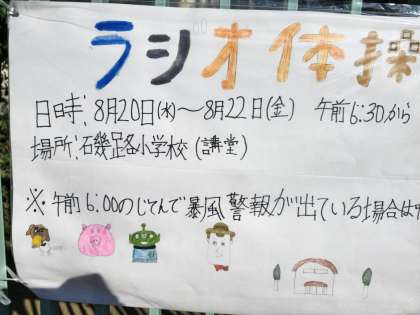 ラジオ体操
日時:8月20日(水)~8月22日(金) 午前6:30から
場所:石幾路小学校(講堂)
※午前6:00のじてんで暴風警報が出ている場合は